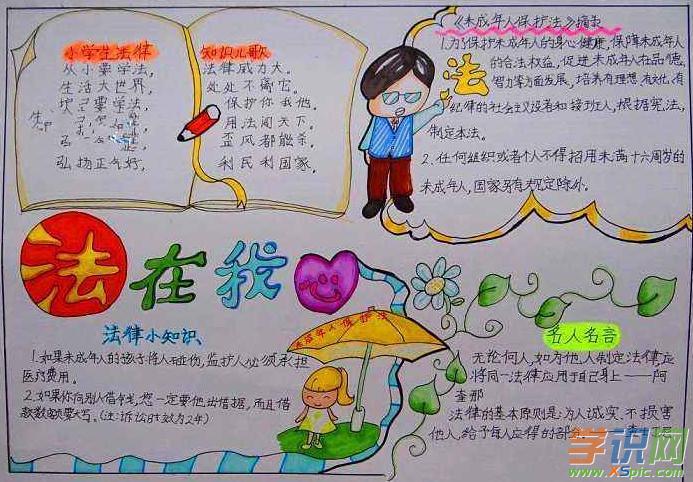 小学生法律
知识儿歌
从小要学法，
生活大世界，
学法，
弘扬正气好，
法律威力大。
处处不离它。
保护你我他。
用法闯天下。
歪风都能杀。
利民利国家。
《未成年人保护法》摘束
1.为了保护未成年人的身心健康，保障未成年人
的合法权益，促进未成年人在品德、
智力等方面发展，培养有理想、有文化、有
纪律的社会主义设者和接班人，根据宪法，
制定本法。
2.任何组织或者个人不得招用未满十六周岁的
未成年人，国家另有规定除外。
法
法在我心
法律小知识
1.如果未成年人的孩子将人砸伤，监护人必须承担
医疗费用。
2.如果你向别人借钱，您一定要他出借据，而且借
款数额要大写。(注：诉讼时效为2年)
未成年人保护法
名人名言
无论何人，如为他人制定法律，应
将同一法律应用于自己身上——阿
奎那
法律的基本原则是：为人诚实，不损害
他人，给予每人应得的部
学识网
www.XSpic.com